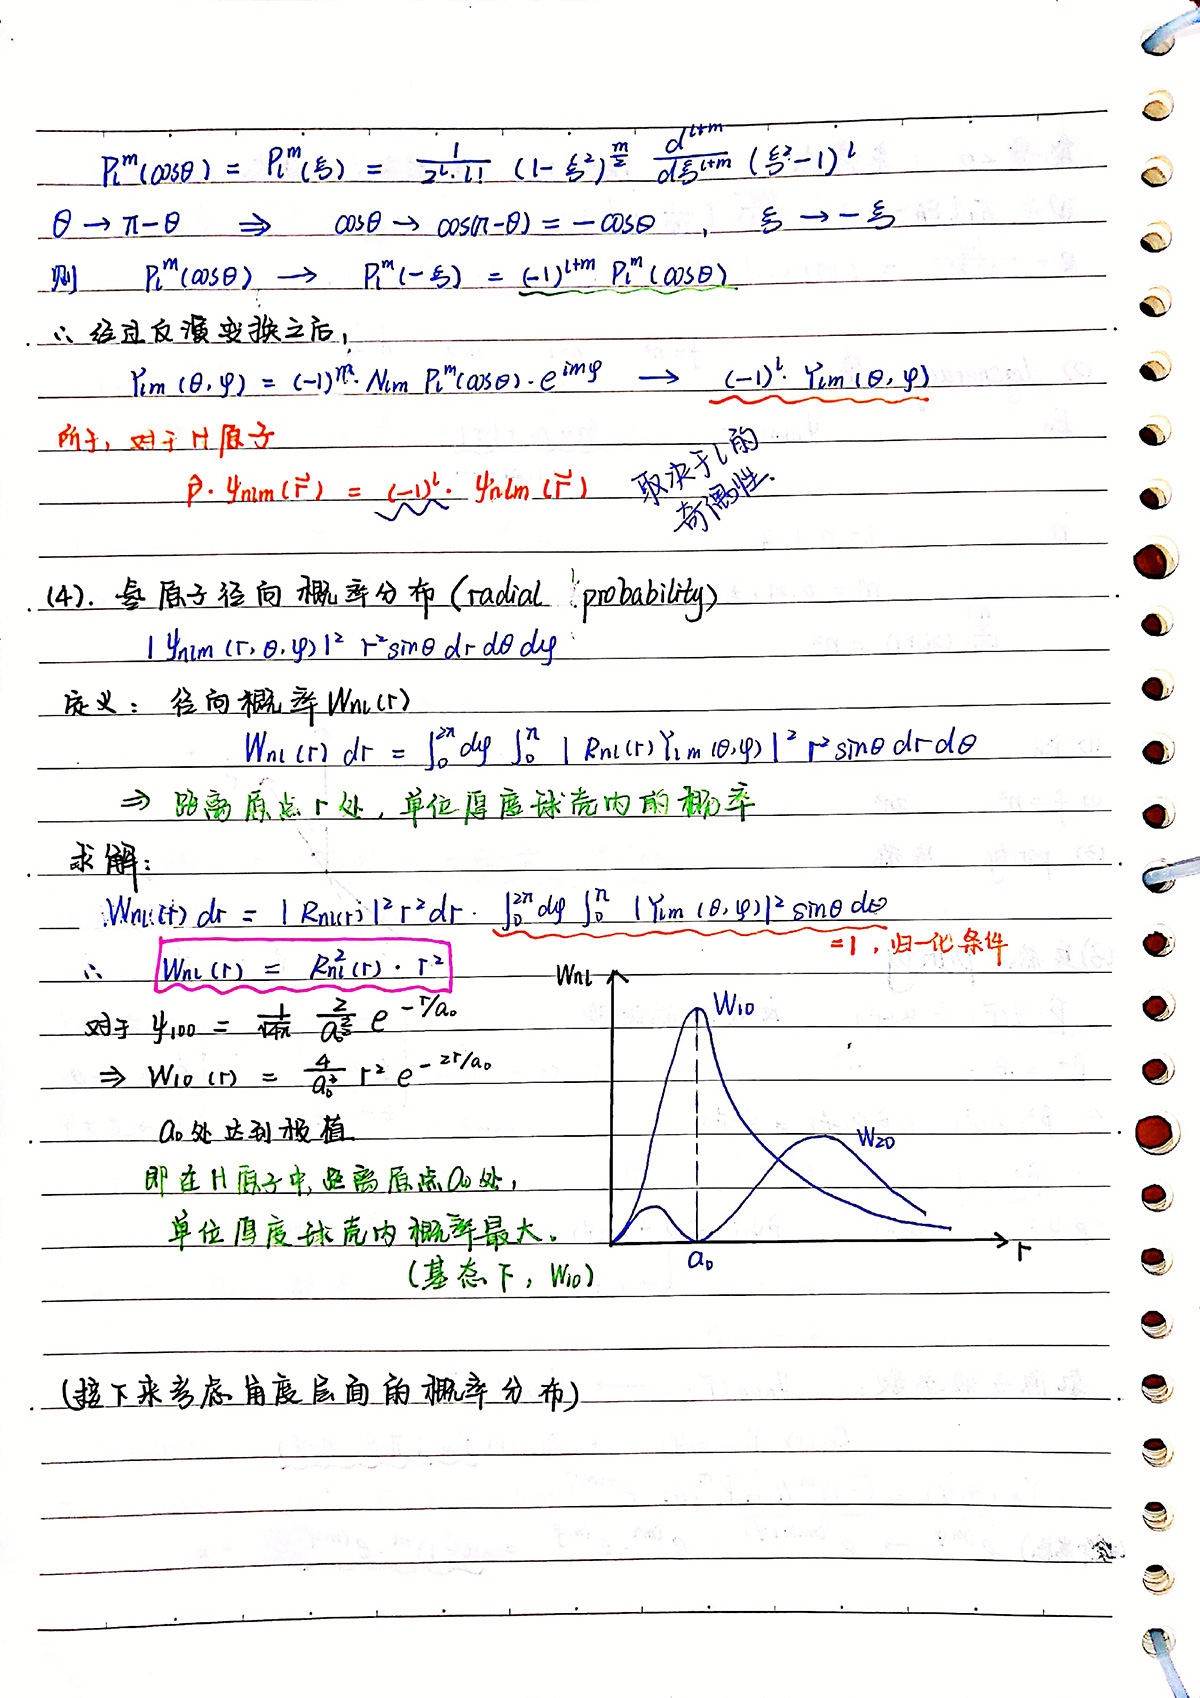 P_l^m(cosθ) = P_l^m(ξ) = \frac{1}{2^l·l!} (1-ξ²)^{\frac{m}{2}} \frac{d^{l+m}}{dξ^{l+m}} (ξ²-1)^l
θ → π-θ ⇒ cosθ → cos(π-θ) = -cosθ , ξ → -ξ
则 P_l^m(cosθ) → P_l^m(-ξ) = (-1)^{l+m} P_l^m(cosθ)
∴ 经过反演变换之后,
Y_{lm}(θ,φ) = (-1)^m · N_{lm} P_l^m(cosθ)·e^{imφ} → (-1)^l · Y_{lm}(θ,φ)
所于, 对于H原子
p̂·ψ_{nlm}(r⃗) = (-1)^l · ψ_{nlm}(r⃗)
取决于l的
奇偶性.
(4). 氢原子径向概率分布(radial probability)
|ψ_{nlm}(r,θ,φ)|² r²sinθ dr dθ dφ
定义: 径向概率W_{nl}(r)
W_{nl}(r) dr = ∫_0^{2π}dφ ∫_0^π |R_{nl}(r)Y_{lm}(θ,φ)|² r²sinθ dr dθ
⇒ 距离原点r处, 单位厚度球壳内的概率
求解:
W_{nl}(r) dr = |R_{nl}(r)|² r²dr · ∫_0^{2π}dφ ∫_0^π |Y_{lm}(θ,φ)|² sinθ dθ
=1, 归一化条件
∴ W_{nl}(r) = R_{nl}²(r) · r²
对于 ψ_{100} = \frac{1}{\sqrt{4π}} \frac{2}{a_0^{\frac{3}{2}}} e^{-r/a_0}
⇒ W_{10}(r) = \frac{4}{a_0^3} r² e^{-2r/a_0}
a_0处达到极值
即在H原子中, 距离原点a_0处,
单位厚度球壳内概率最大.
(基态下, W_{10})
W_{nl}
W_{10}
W_{20}
a_0
r
(接下来考虑角度层面的概率分布)